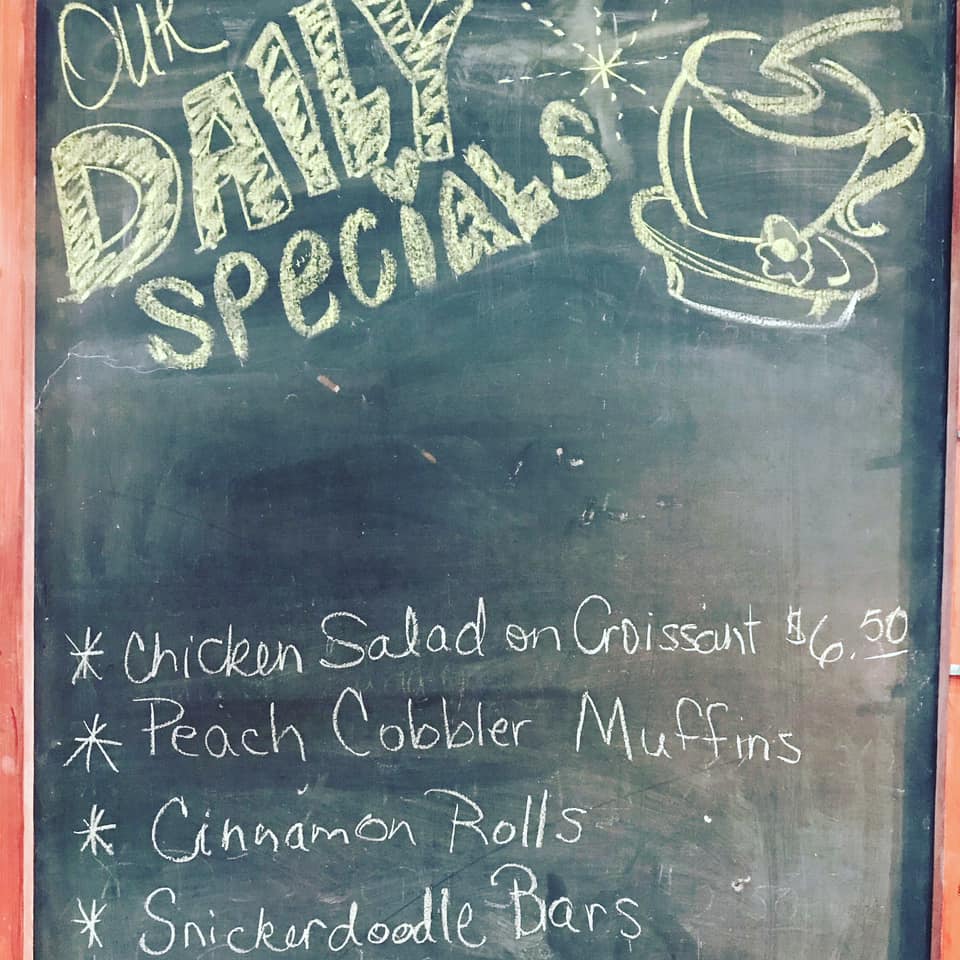 Our
DAILY
SPeCiALS
* Chicken Salad on Croissant $6.50
* Peach Cobbler Muffins
* Cinnamon Rolls
* Snickerdoodle Bars